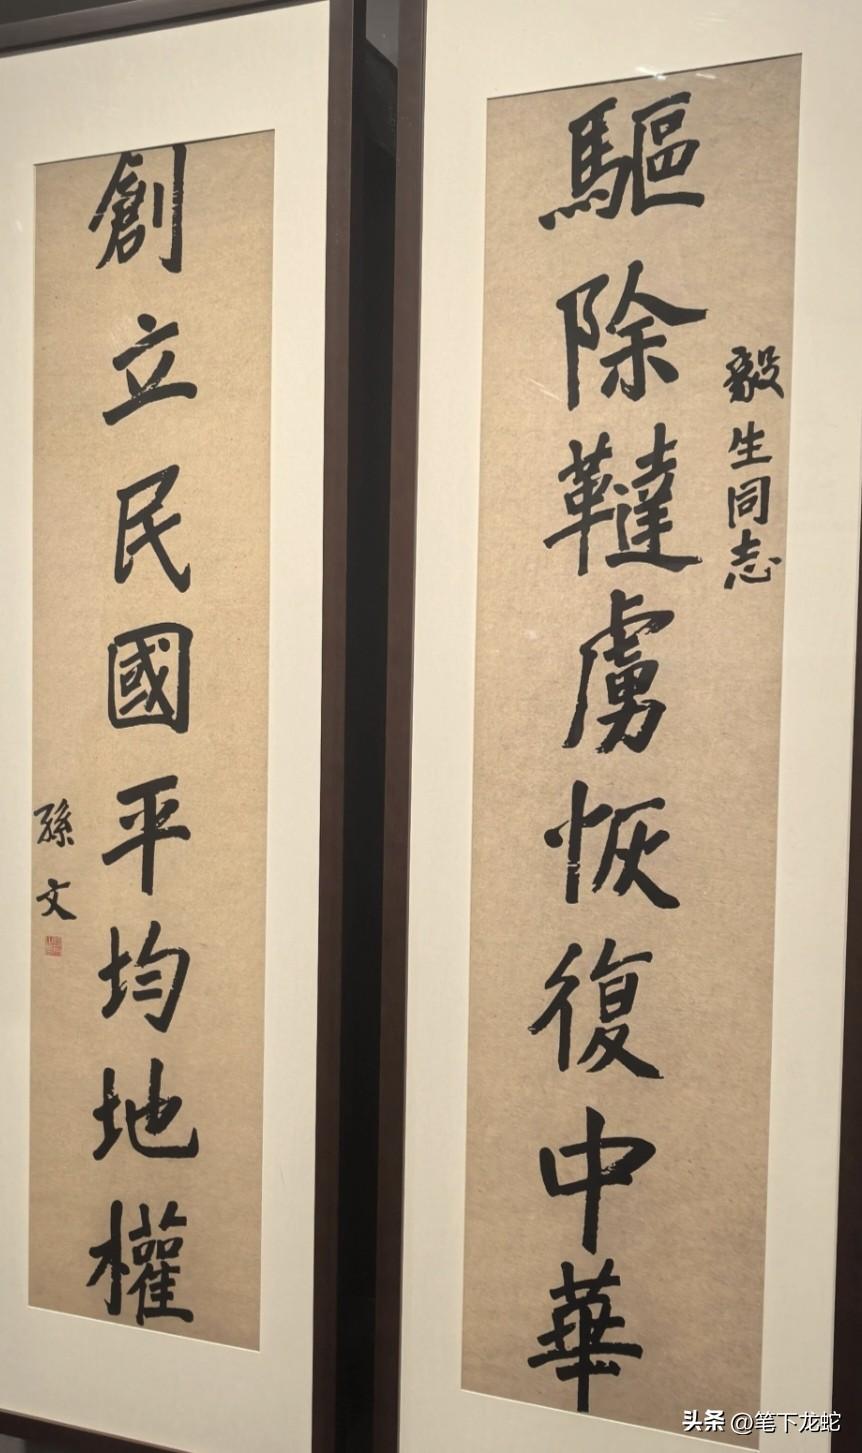 毅生同志
驅除韃虜恢復中華
創立民國平均地權
孫文
头条 @笔下龙蛇